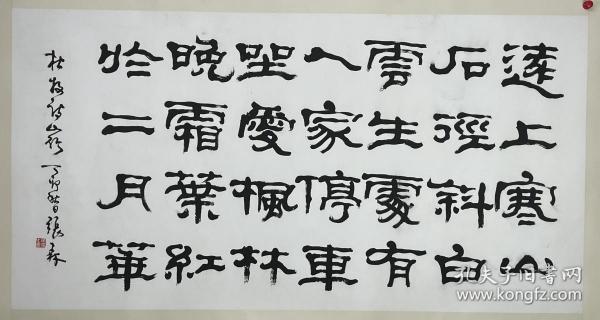 遠上寒山
石徑斜白
雲生處有
人家停車
坐愛楓林
晚霜葉紅
於二月華
杜牧詩山行 丁卯秋日張森
孔夫子旧书网
www.kongfz.com